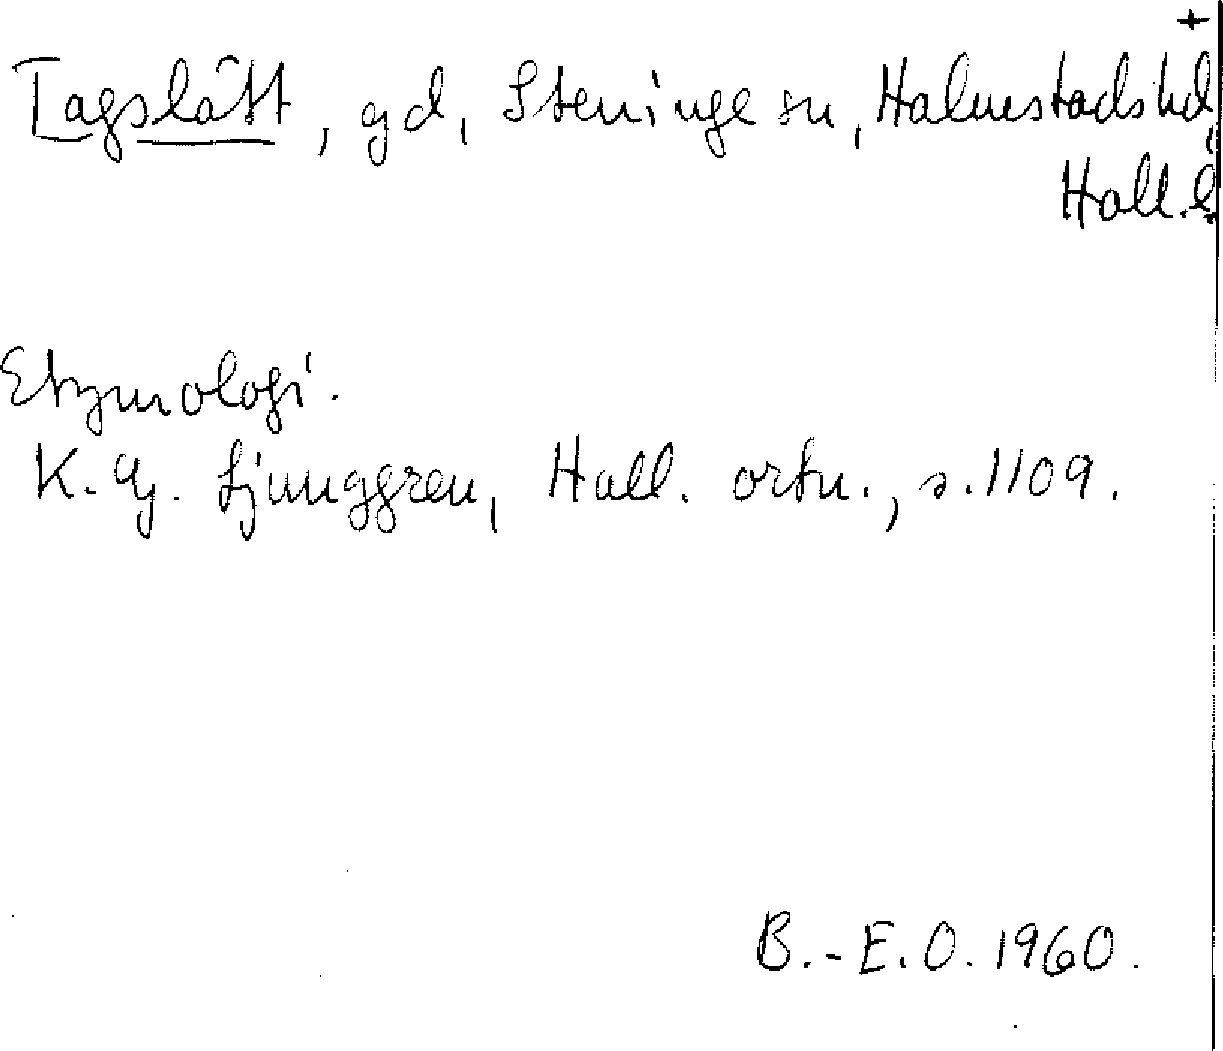 +
Tagslätt, gd, Steninge sn, Halmstads hd,
Hall. l.
Etymologi.
K. G. Ljunggren, Hall. ortn., s. 1109.
B.-E. O. 1960.